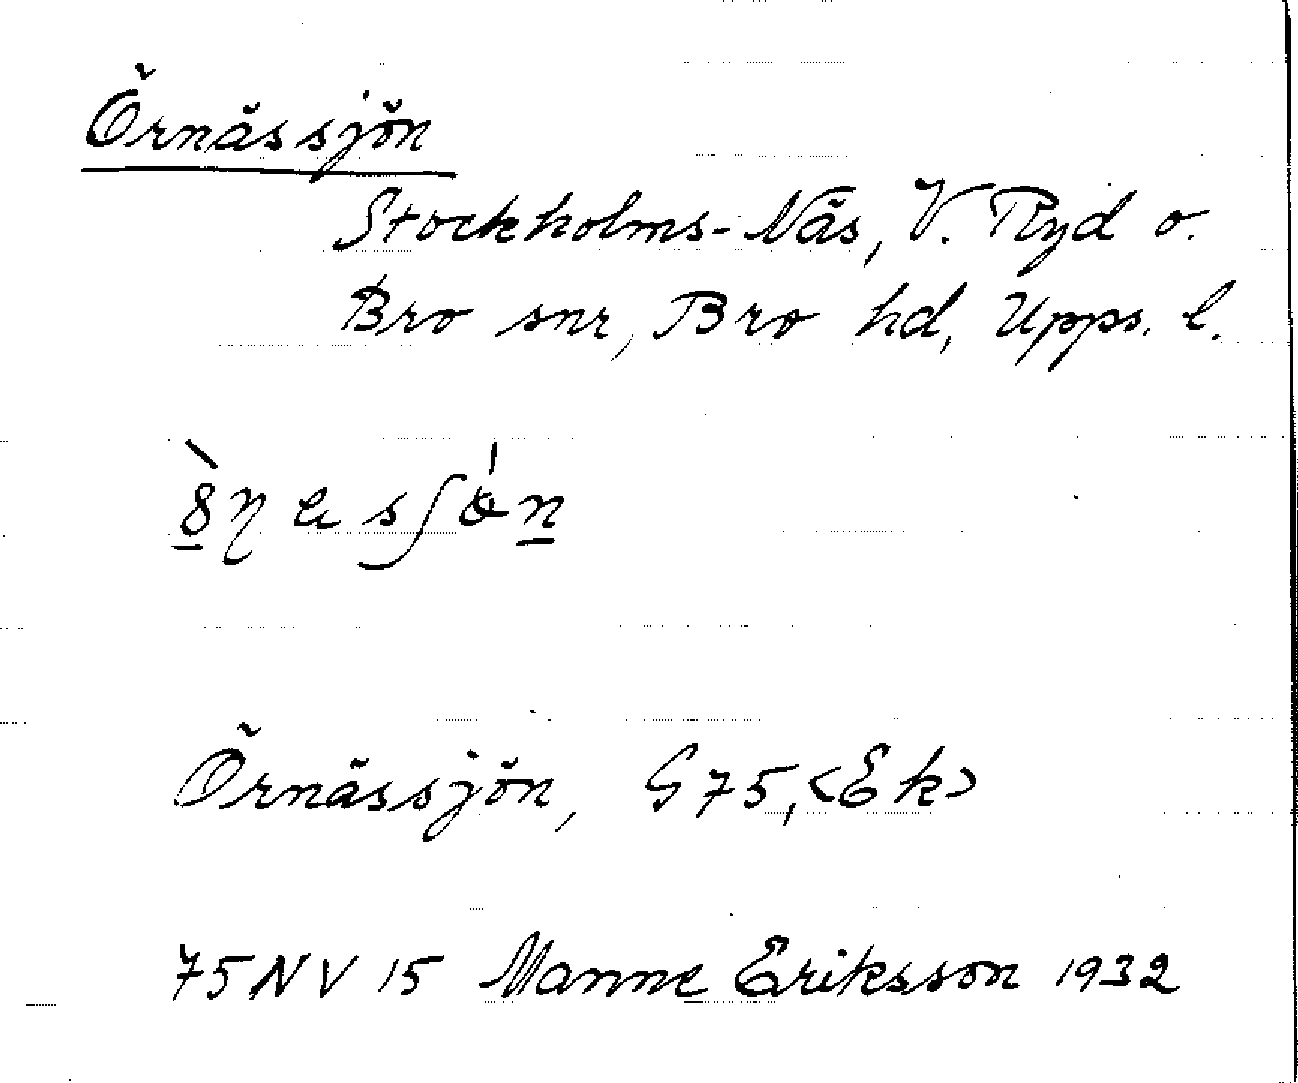 Örnässjön
Stockholms-Näs, V. Ryd o.
Bro snr, Bro hd, Upps. l.
Örnässjön, G75, <Ek>
75NV 15 Manne Eriksson 1932